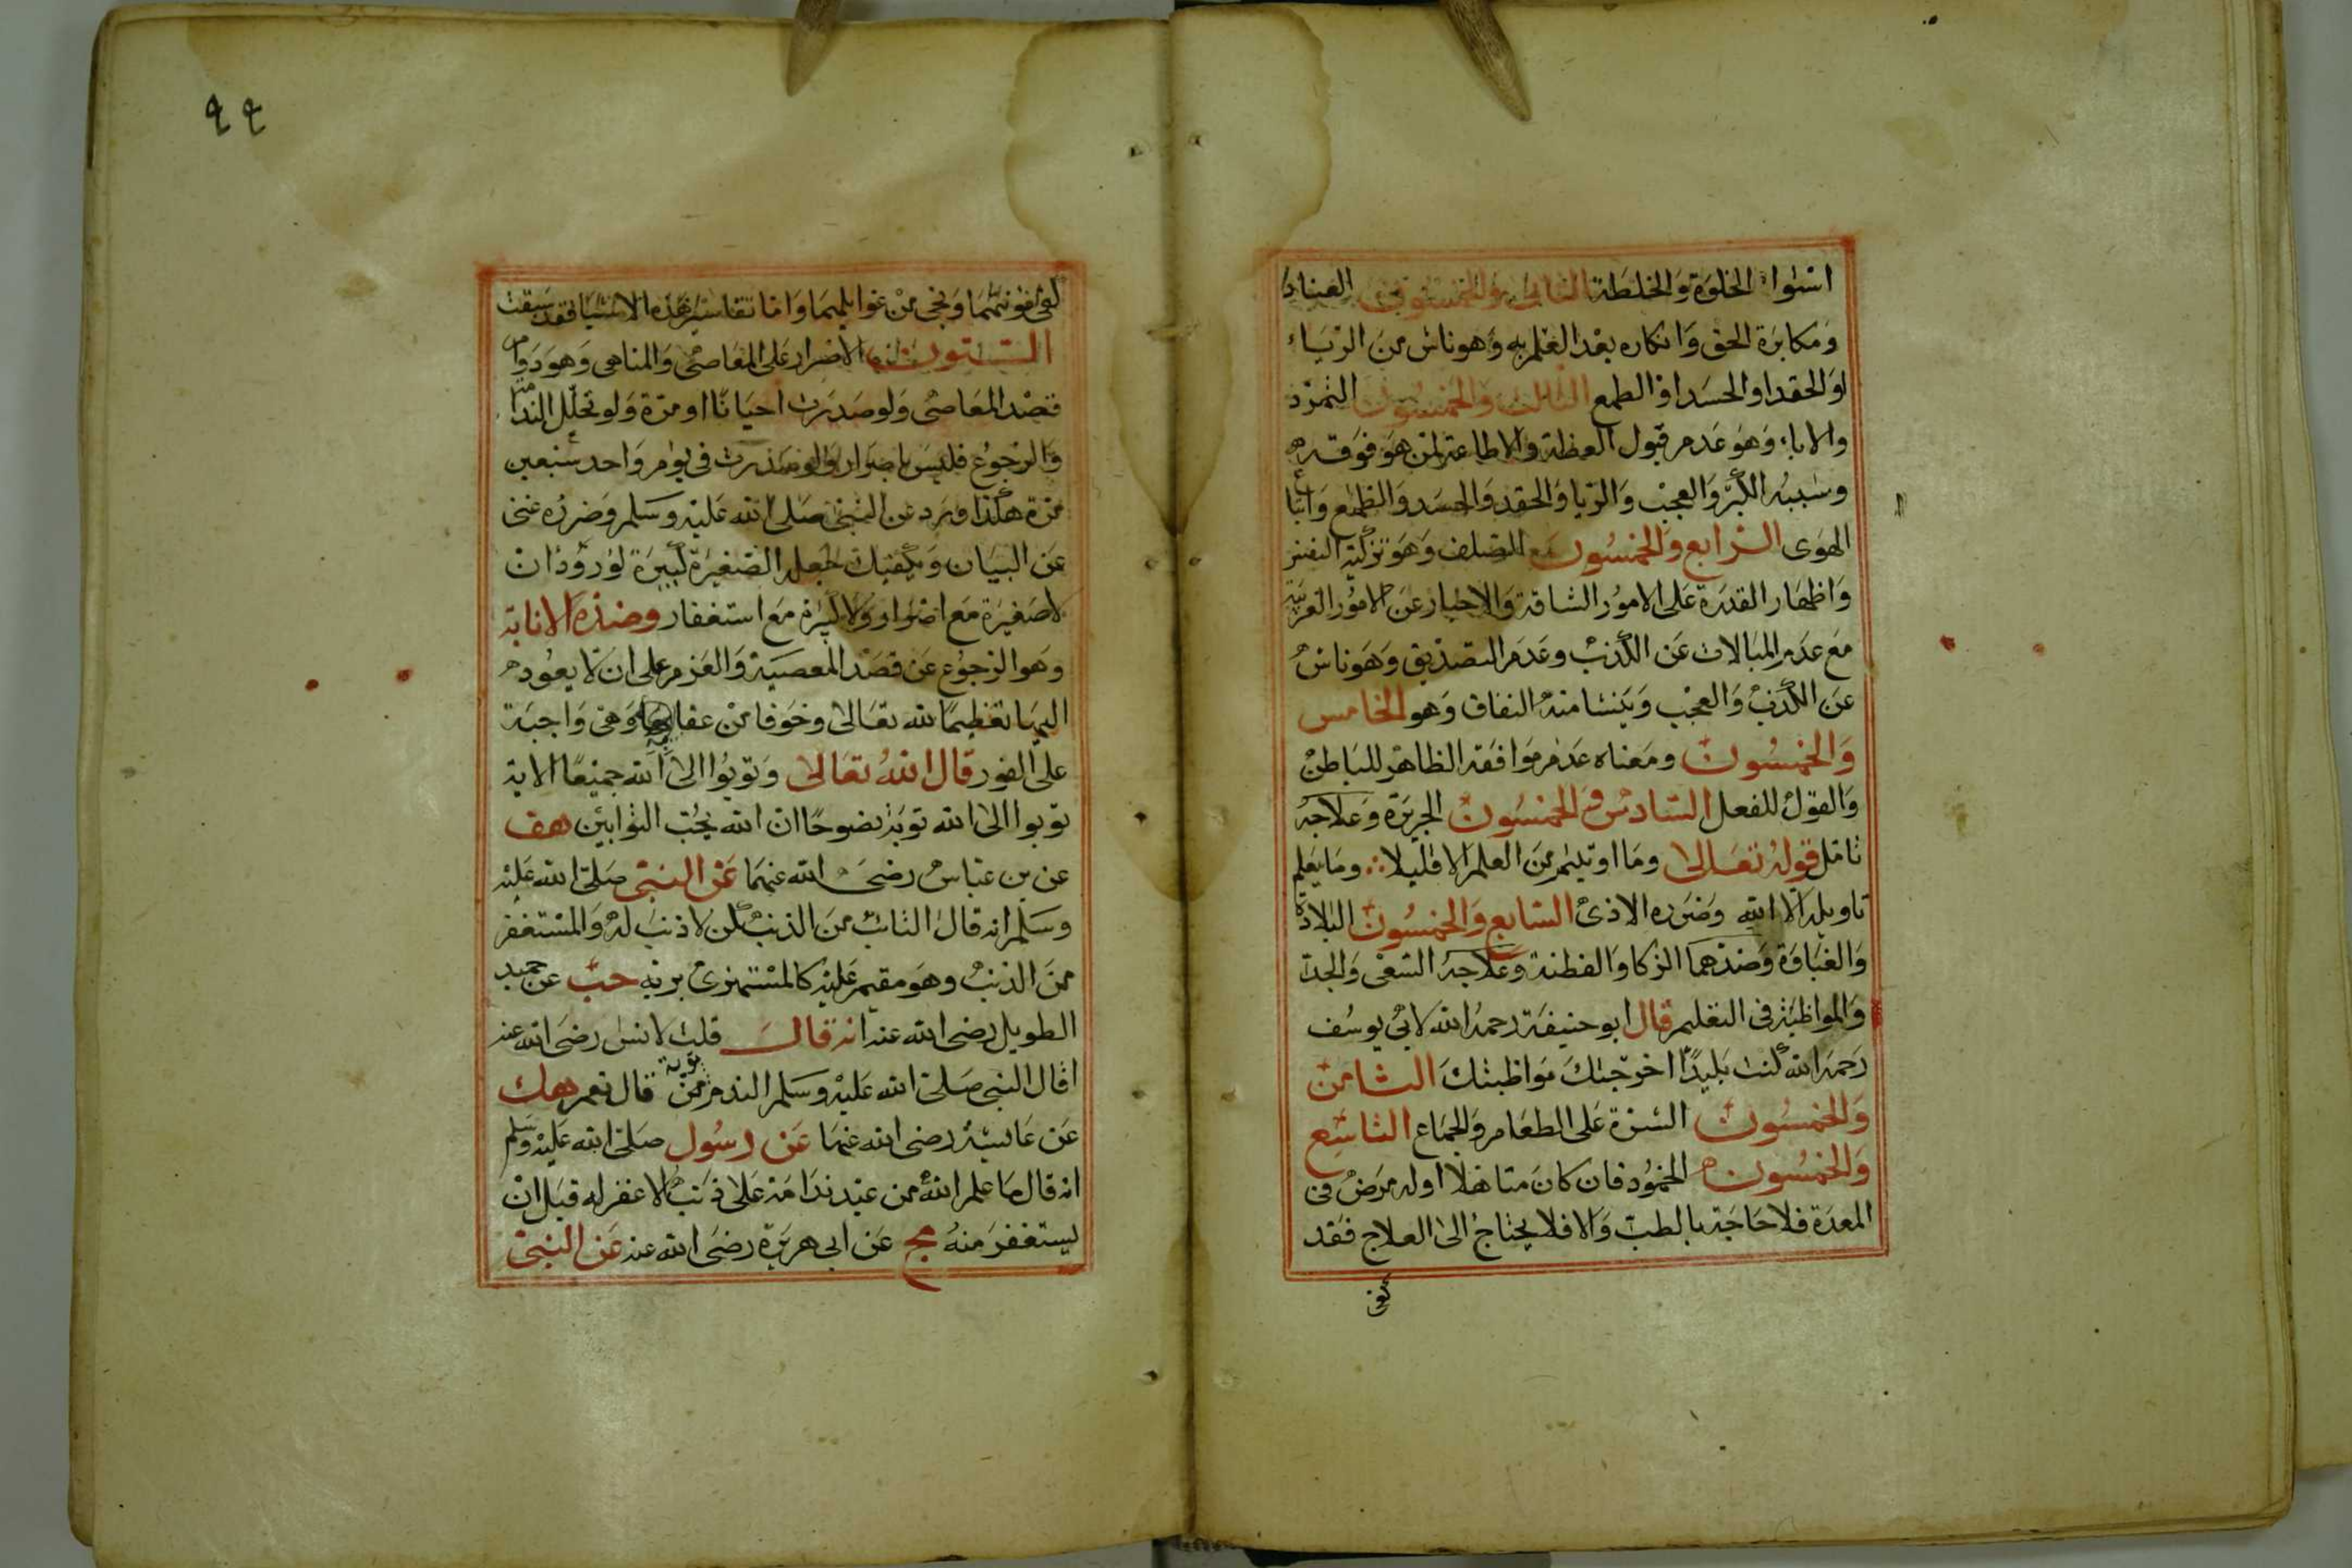 استواء الخلوة والخلطة الثاني والخمسون العناد
ومكابرة الحق وانكاره بعد العلم به وهو ناش من الرياء
او الحقد او الحسد او الطمع الثالث والخمسون التمرد
والاباء وهو عدم قبول العظة والاطاعة لمن هو فوقه
وسببه الكبر والعجب والريا والحقد والحسد والطمع واتباع
الهوى الرابع والخمسون الصلف وهو تزكية النفس
واظهار القدرة على الامور الشاقة والاخبار عن الامور الغريبة
مع عدم المبالات عن الكذب وعدم التصديق وهو ناش
عن الكذب والعجب وينشا منه النفاق وهو الخامس
والخمسون ومعناه عدم موافقة الظاهر للباطن
والقول للفعل السادس والخمسون الجربزة وعلاجه
تامل قوله تعالى وما اوتيتم من العلم الا قليلا ∴ وما يعلم
تاويله الا الله وضرره الاذى السابع والخمسون البلادة
والغباوة وضدهما الزكا والفطنة وعلاجه السعى والجد
والمواظبة فى التعليم قال ابو حنيفة رحمه الله لابي يوسف
رحمه الله كنت بليدا اخرجتك مواظبتك الثامن
والخمسون الشره على الطعام والجماع التاسع
والخمسون الخمود فان كان متاهلا او له مرض فى
المعدة فلا حاجة بالطب والا فلا يحتاج الى العلاج فقد
كفى
٩٩
كفى مؤنتهما ونجى من غوايلهما واما تفاسير هذه الاشيا فقد سبقت
الستون الاصرار على المعاصى والمناهى وهو دوام
قصد المعاصى ولو صدرت احيانا او مرة ولو تخلل الندامة
والرجوع فليس باصرار ولو صدرت فى يوم واحد سبعين
مرة هكذا ورد عن النبى صلى الله عليه وسلم وضرره غنى
عن البيان ويكفيك جعل الصغيرة كبيرة لورود ان
لا صغيرة مع اصرار ولا كبيرة مع استغفار وضده الانابة
وهو الرجوع عن قصد المعصية والعزم على ان لا يعود
اليها تعظيما لله تعالى وخوفا من عقابه وهى واجبة
على الفور قال الله تعالى وتوبوا الى الله جميعا الاية
توبوا الى الله توبة نصوحا ان الله يحب التوابين هق
عن بن عباس رضى الله عنهما عن النبى صلى الله عليه
وسلم انه قال التائب من الذنب كمن لا ذنب له والمستغفر
من الذنب وهو مقيم عليه كالمستهزئ بربه حب عن حميد
الطويل رضى الله عنه انه قال قلت لانس رضى الله عنه
اقال النبى صلى الله عليه وسلم الندم توبة قال نعم هك
عن عايشة رضى الله عنها عن رسول صلى الله عليه وسلم
انه قال ما علم الله من عبد ندامة على ذنب الا غفر له قبل ان
يستغفر منه مج عن ابى هريرة رضى الله عنه عن النبى